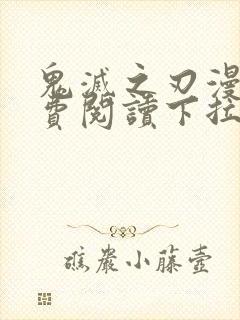 鬼滅之刃漫
費閱讀下拉
礁巖小藤壺